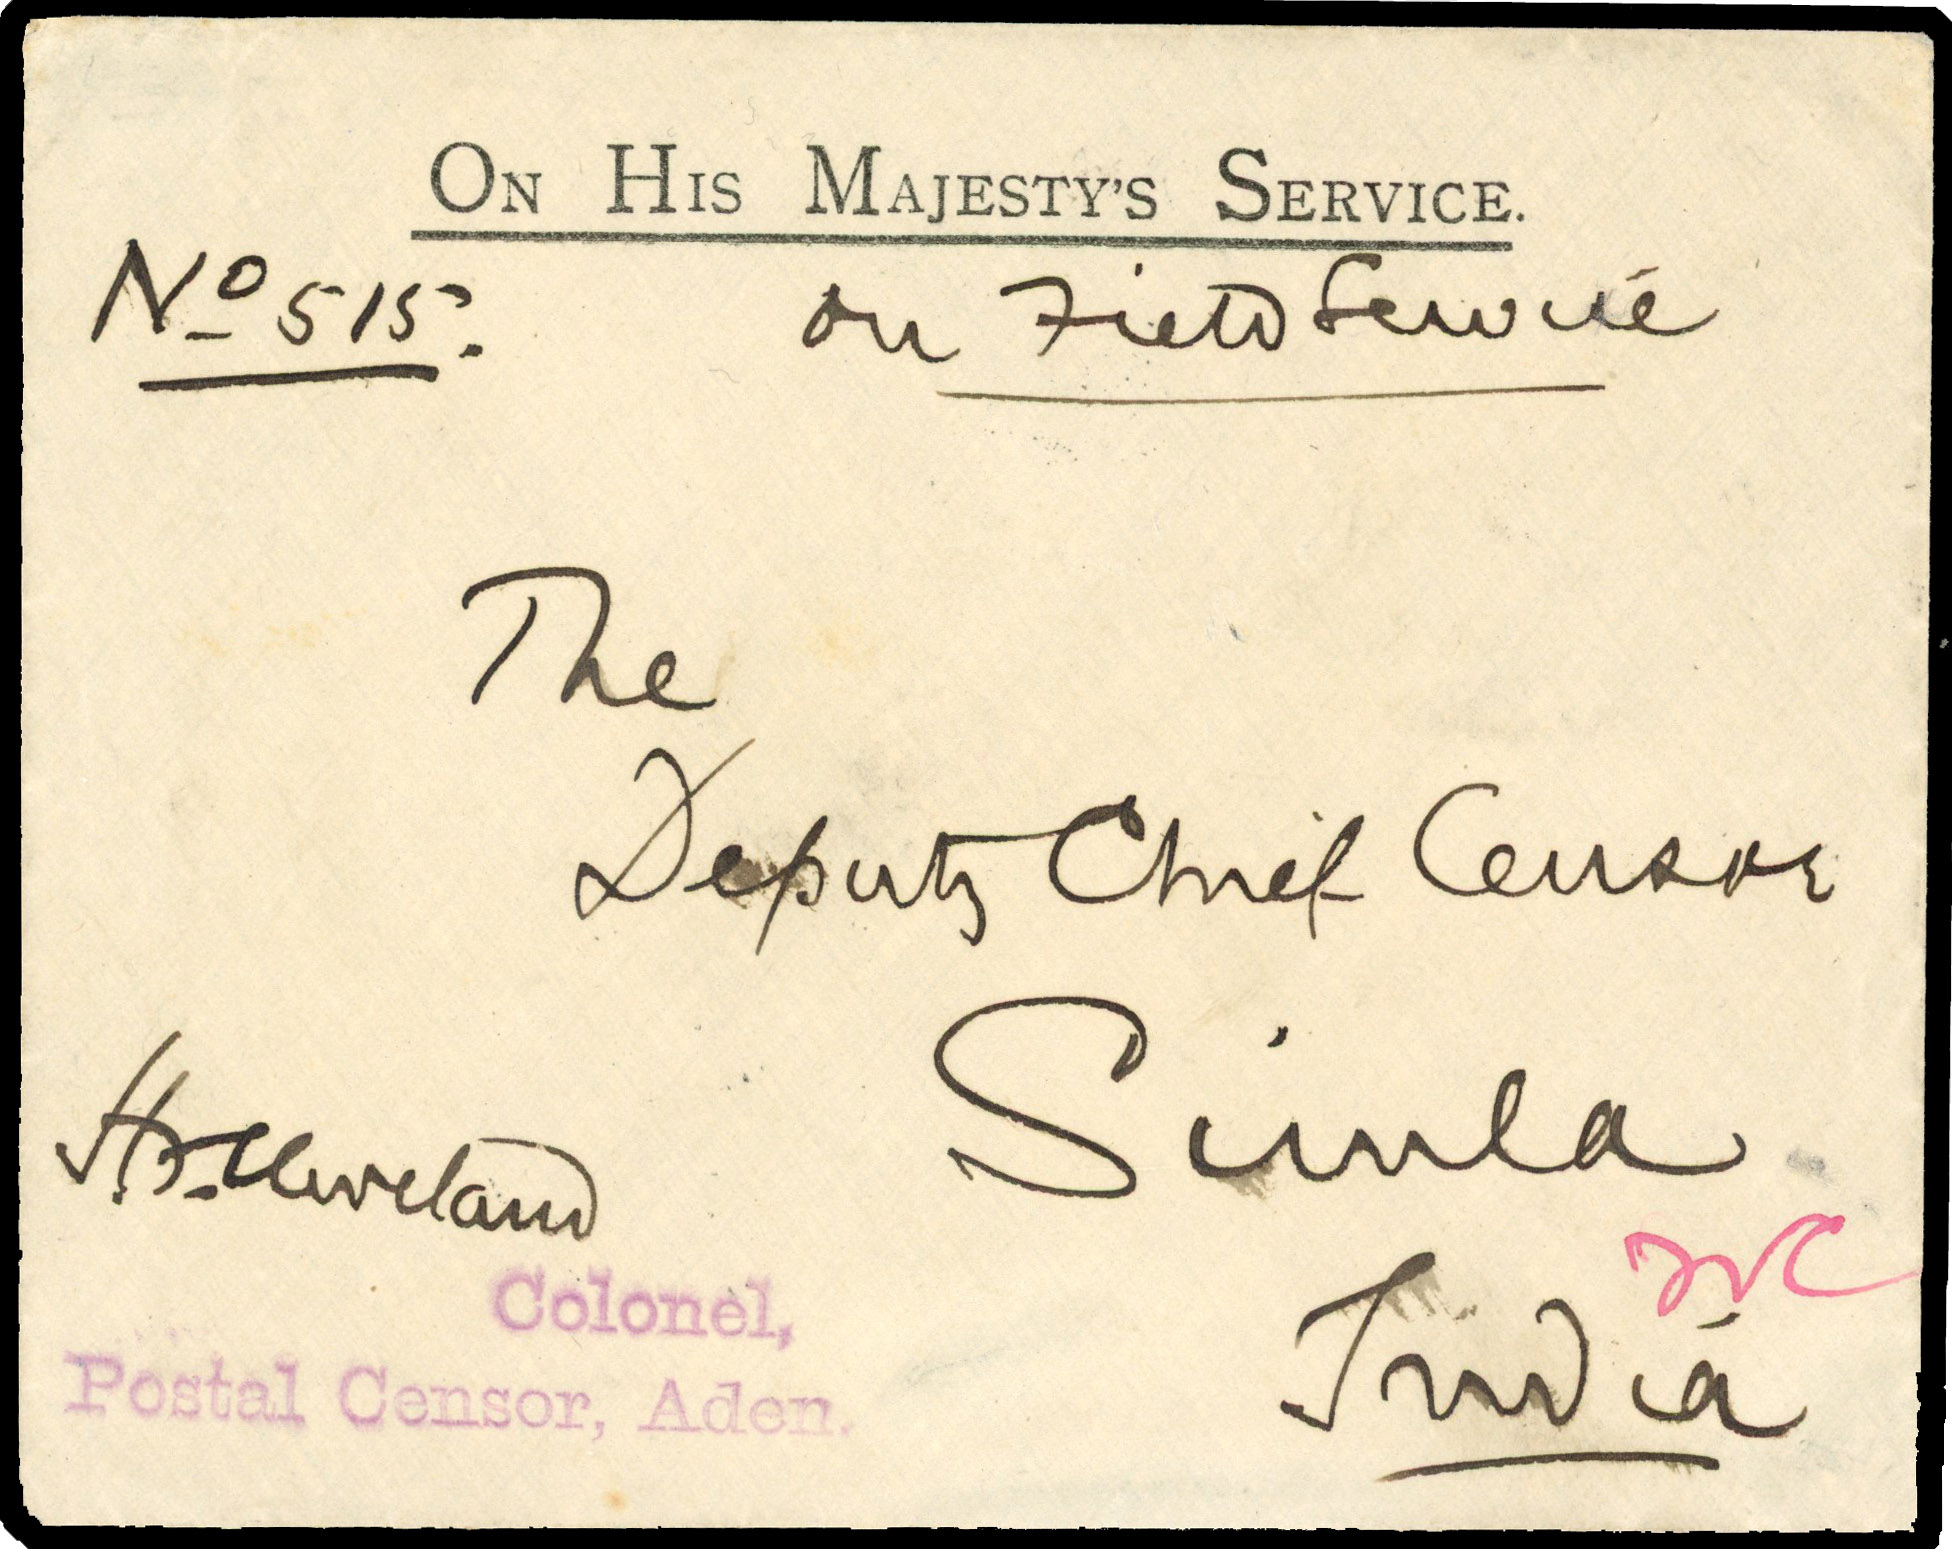 On His Majesty's Service.
No 515.
On Field Service
The
Deputy Chief Censor
Simla
India
Colonel,
Postal Censor, Aden.